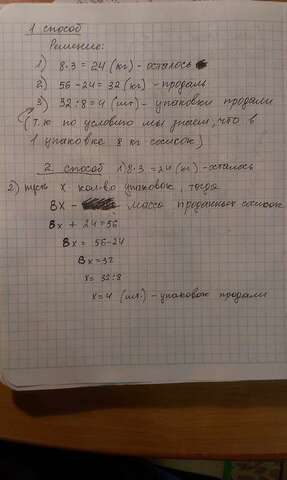 1 способ
Решение:
1) 8·3=24(кг) - осталось
2) 56-24=32(кг) - продали
3) 32:8=4(шт) - упаковки продали
(т.к по условию мы знаем, что в
1 упаковке 8 кг сосисок)
2 способ 1) 8·3=24(кг) - осталось
2) пусть х кол-во упаковок, тогда
8х - масса проданных сосисок
8х + 24=56
8х = 56-24
8х=32
х= 32:8
х=4 (шт.) - упаковок продали